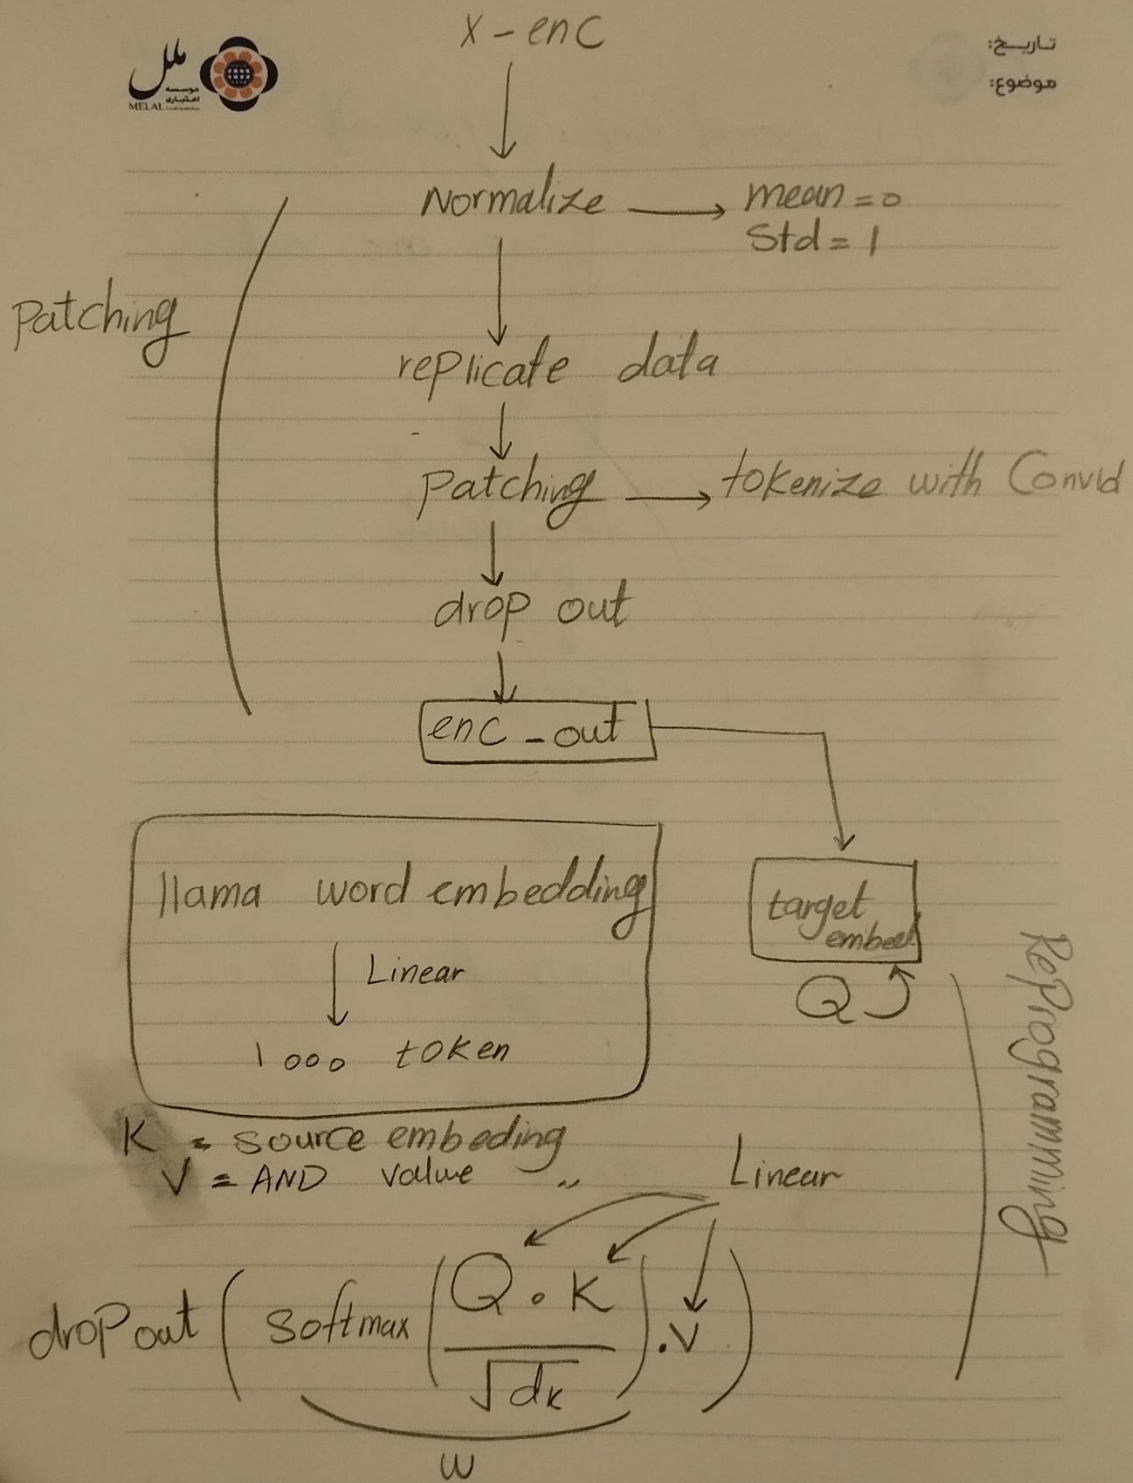 x-enc
ملل
موسسه
اعتباری
MELAL
تاریخ:
موضوع:
Normalize → mean=0
Std=1
Patching
replicate data
Patching → tokenize with Conv1d
drop out
enc-out
llama word embedding
Linear
1000 token
target
embed
Q
Reprogramming
K = source embeding
V = AND value "
Linear
drop out ( softmax ( Q . K / √dk ) . V )
W